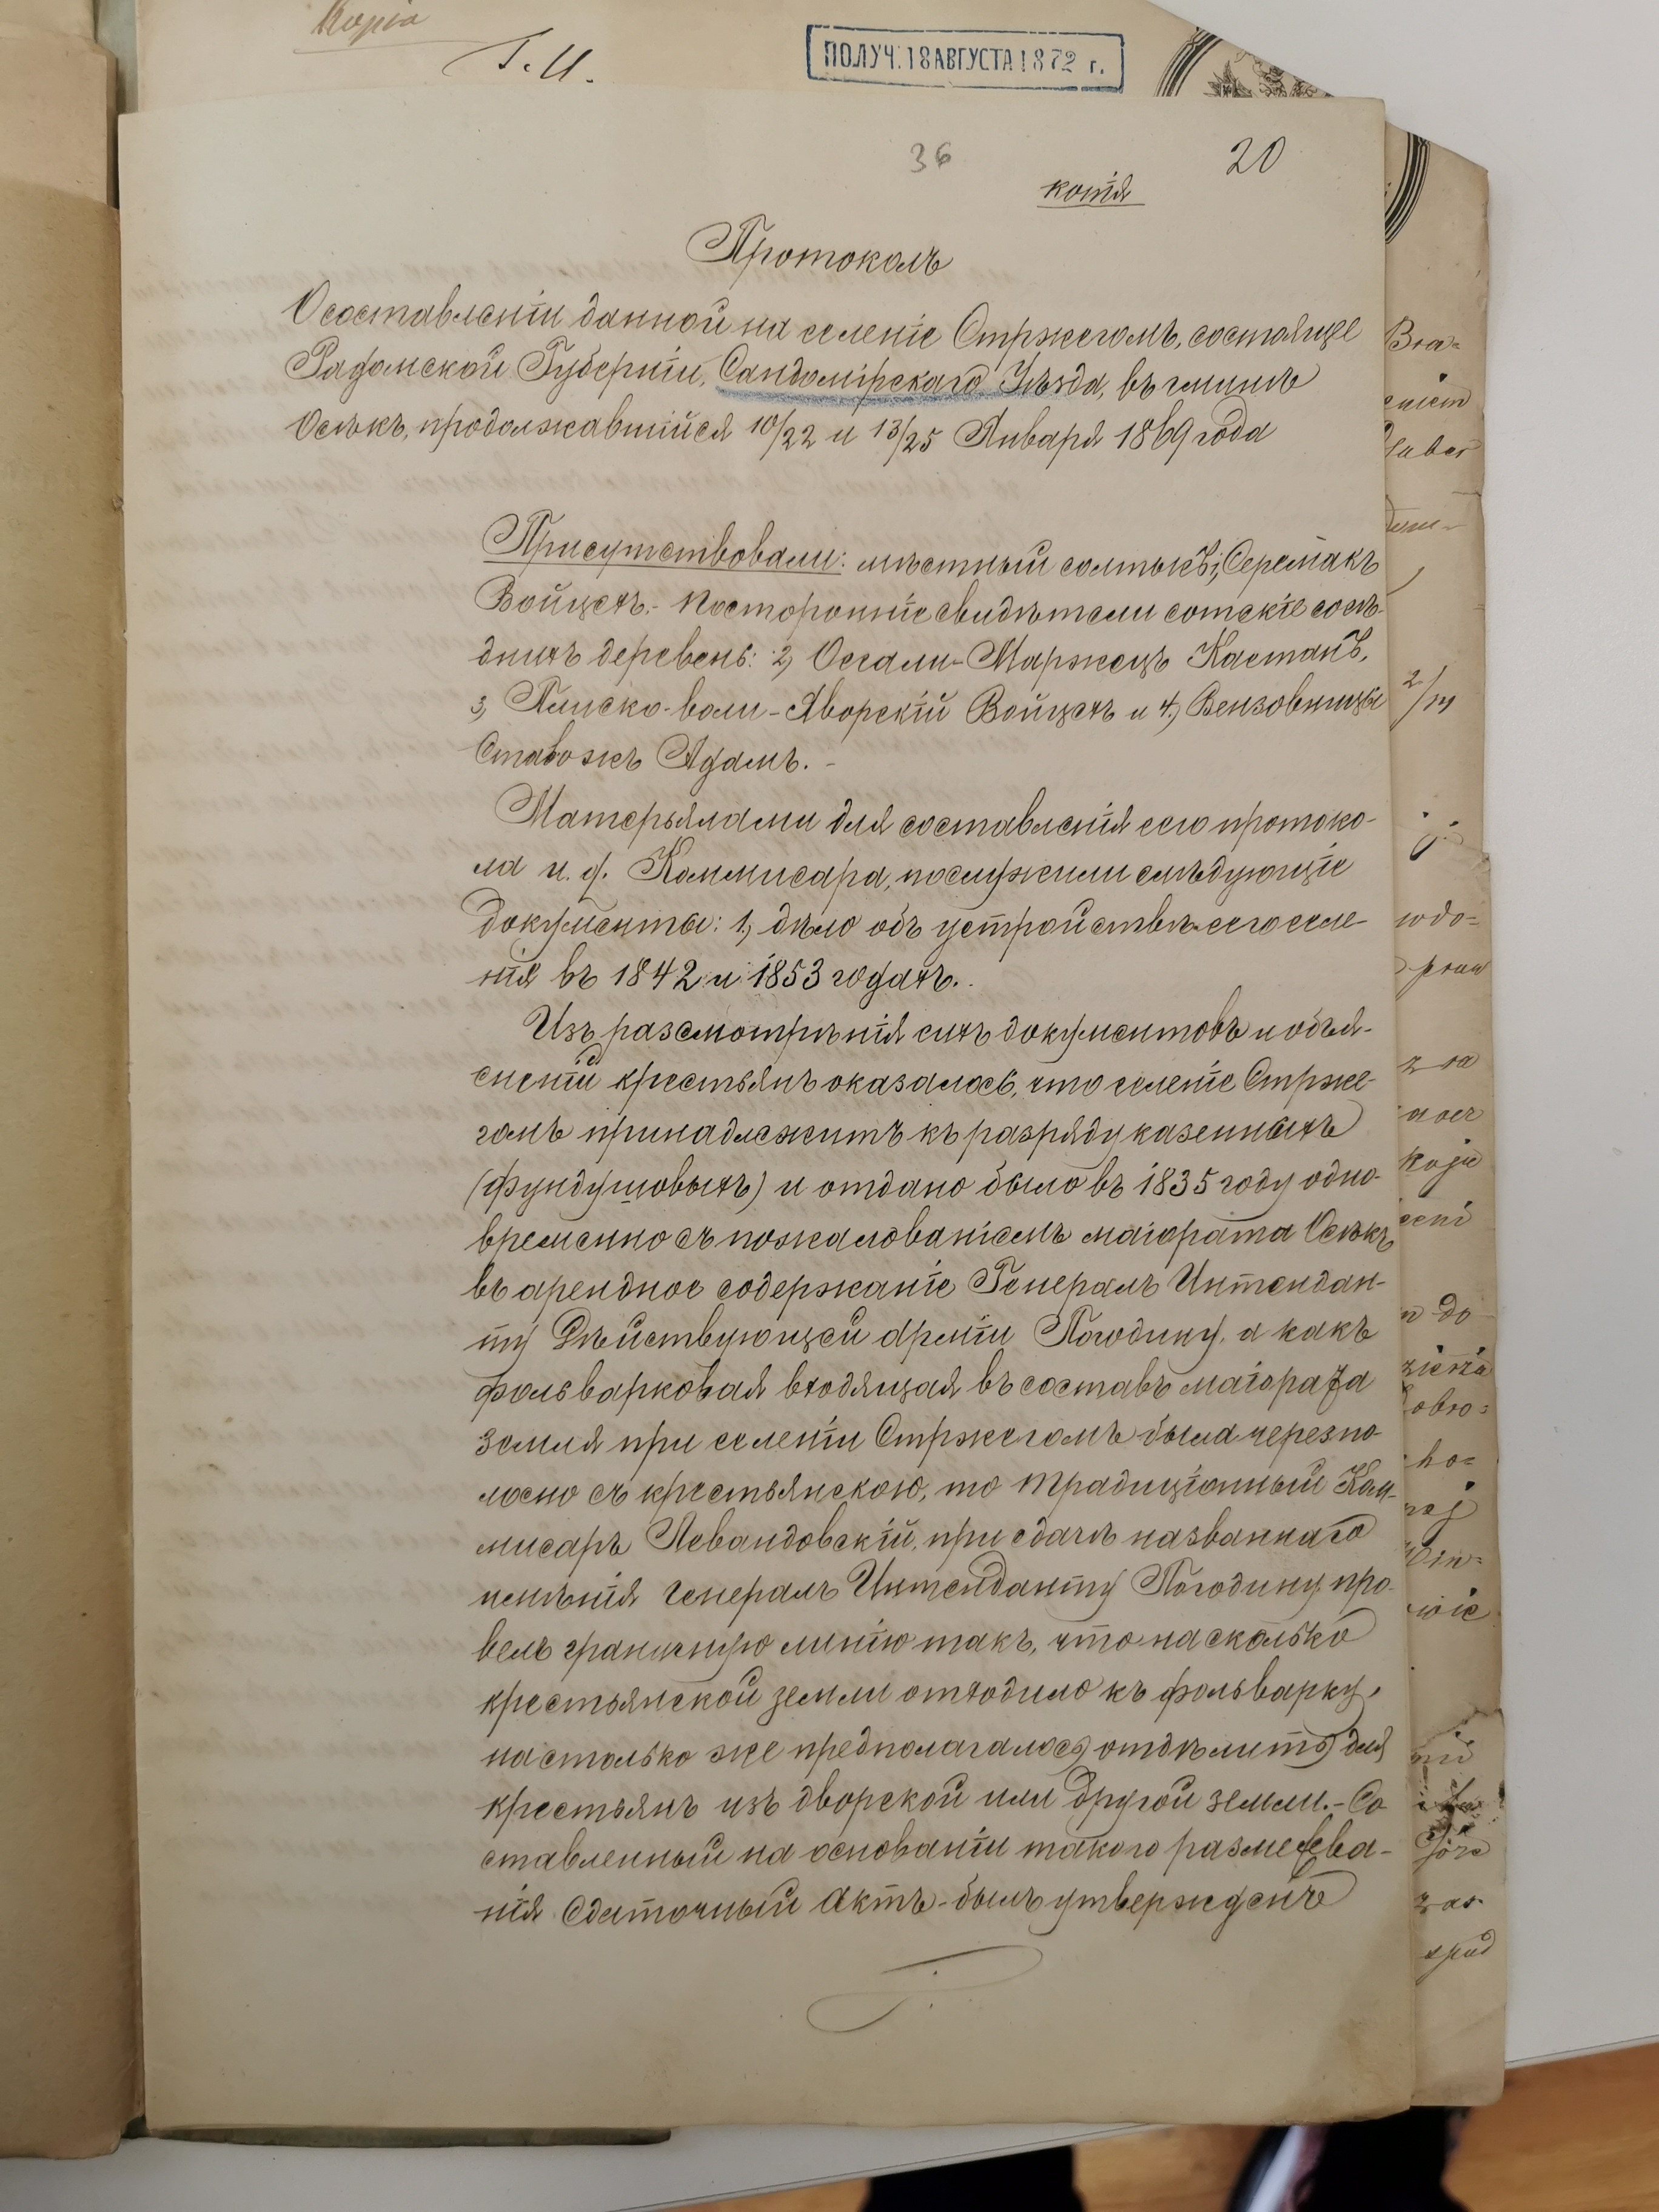 Kopia
Т. И.
ПОЛУЧ. 18 АВГУСТА 1872 г.
36
20
копія
Протоколъ
О составленіи данной на селеніе Стржегомъ, состоящее
Радомской Губерніи, Сандомірскаго Уѣзда, въ гминѣ
Осѣкъ, продолжавшійся 10/22 и 13/25 Января 1869 года
Присутствовали: мѣстный солтысъ: Серемакъ
Войцехъ. - Посторонніе свидѣтели сотскіе сосѣ-
днихъ деревень: 2, Оссали - Маржецъ Кастанъ,
3, Плиско-воли - Яворскій Войцехъ и 4, Вензовницы
Ставожъ Адамъ. -
Матерьялами для составленія сего протоко-
ла и. д. Коммисара, послужили слѣдующіе
документы: 1, дѣло объ устройствѣ сего селе-
нія въ 1842 и 1853 годахъ.
Изъ разсмотрѣнія сихъ документовъ и объя-
сненій крестьянъ оказалось, что селеніе Стрже-
гомъ принадлежитъ къ разряду казенныхъ
(фундушовыхъ) и отдано было въ 1835 году одно-
временно съ пожалованіемъ маіората Осѣкъ,
въ арендное содержаніе Генералъ Интендан-
ту Дѣйствующей арміи Погодину, а какъ
фольварковая входящая въ составъ маіората
земля при селеніи Стржегомъ была черезпо-
лосно съ крестьянскою, то традиціонный Ком-
мисаръ Левандовскій, при сдачѣ названнаго
имѣнія Генералъ Интенданту Погодину, про-
велъ граничную линію такъ, что насколько
крестьянской земли отходило къ фольварку,
настолько же предполагалось отдѣлить для
крестьянъ изъ дворской или другой земли. - Со
ставленный на основаніи такого размежева-
нія Сдаточный Актъ - былъ утвержденъ